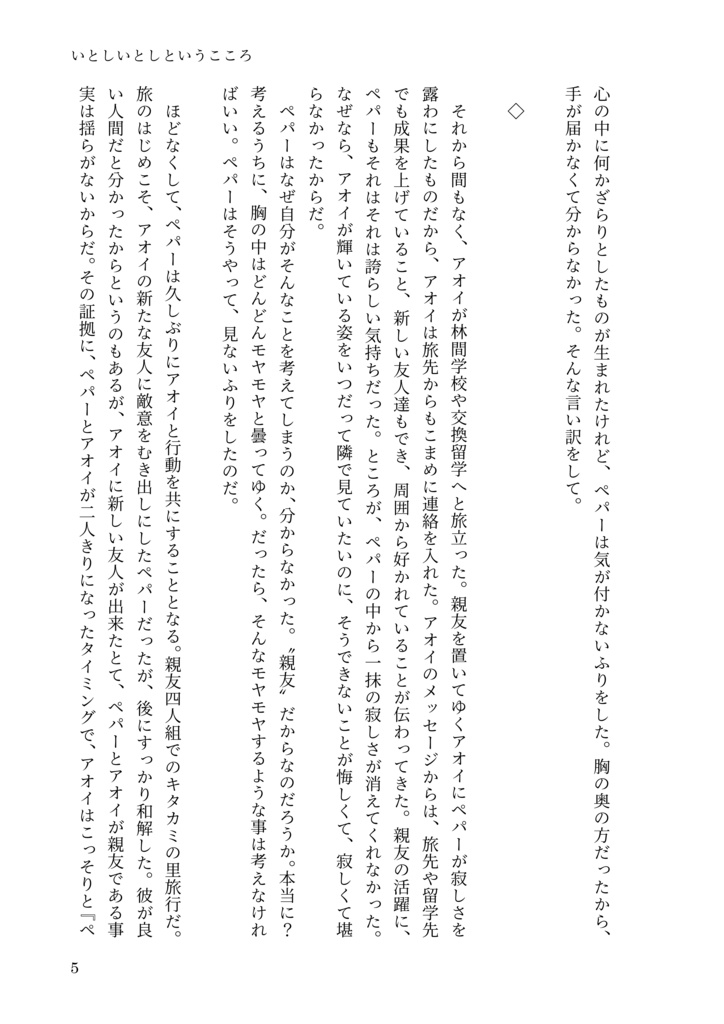 いとしいとしというこころ
心の中に何かざらりとしたものが生まれたけれど、ペパーは気が付かないふりをした。胸の奥の方だったから、
手が届かなくて分からなかった。そんな言い訳をして。
◇
それから間もなく、アオイが林間学校や交換留学へと旅立った。親友を置いてゆくアオイにペパーが寂しさを
露わにしたものだから、アオイは旅先からもこまめに連絡を入れた。アオイのメッセージからは、旅先や留学先
でも成果を上げていること、新しい友人達もでき、周囲から好かれていることが伝わってきた。親友の活躍に、
ペパーもそれはそれは誇らしい気持ちだった。ところが、ペパーの中から一抹の寂しさが消えてくれなかった。
なぜなら、アオイが輝いている姿をいつだって隣で見ていたいのに、そうできないことが悔しくて、寂しくて堪
らなかったからだ。
ペパーはなぜ自分がそんなことを考えてしまうのか、分からなかった。〝親友〟だからなのだろうか。本当に？
考えるうちに、胸の中はどんどんモヤモヤと曇ってゆく。だったら、そんなモヤモヤするような事は考えなけれ
ばいい。ペパーはそうやって、見ないふりをしたのだ。
ほどなくして、ペパーは久しぶりにアオイと行動を共にすることとなる。親友四人組でのキタカミの里旅行だ。
旅のはじめこそ、アオイの新たな友人に敵意をむき出しにしたペパーだったが、後にすっかり和解した。彼が良
い人間だと分かったからというのもあるが、アオイに新しい友人が出来たとて、ペパーとアオイが親友である事
実は揺らがないからだ。その証拠に、ペパーとアオイが二人きりになったタイミングで、アオイはこっそりと『ペ
5